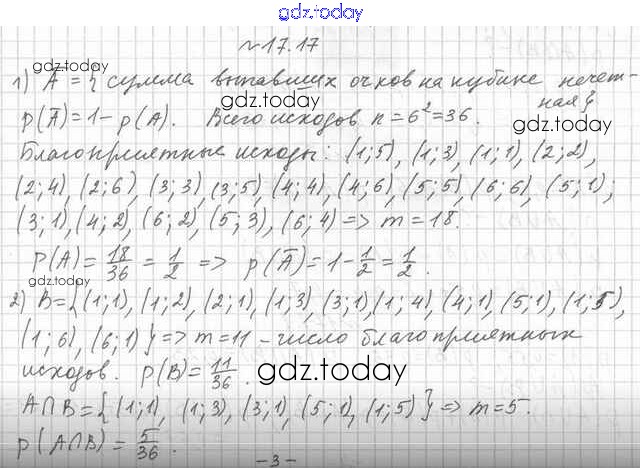 gdz.today
№17.17
1) Ā = { сумма выпавших очков на кубике нечет-
ная}
gdz.today
p(Ā)=1-p(A). Всего исходов n=6²=36.
gdz.today
gdz.today
Благоприятные исходы: (1;5), (1;3), (1;1), (2;2),
(2;4), (2;6), (3;3), (3;5), (4;4), (4;6), (5;5), (6;6), (5;1);
(3;1), (4;2), (6;2), (5;3), (6;4) => m=18.
P(A)=18/36=1/2 => p(Ā)=1-1/2=1/2.
gdz.today
2) B={(1;1), (1;2), (2;1), (1;3), (3;1), (1;4), (4;1), (5;1), (1;5),
(1;6), (6;1)} => m=11 - число благоприятных
исходов. p(B)=11/36.
gdz.today
A∩B={(1;1), (1;3), (3;1), (5;1), (1;5)} => m=5.
p(A∩B)=5/36.
-3-